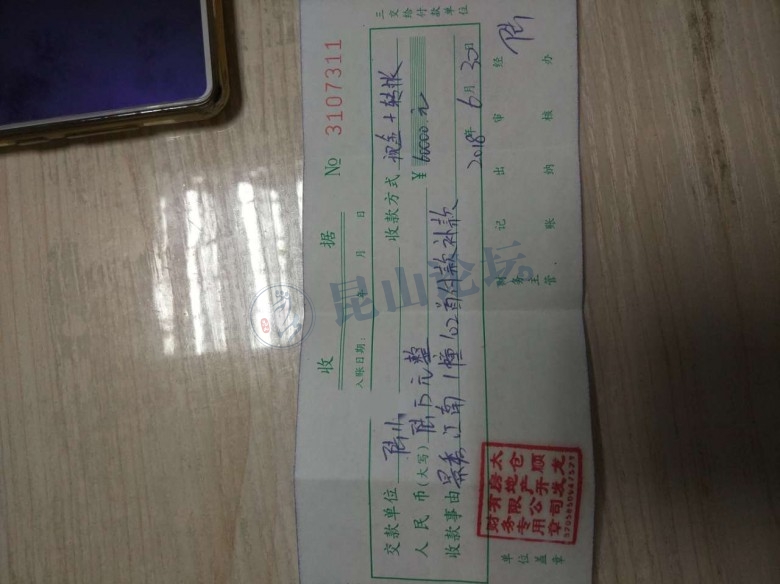 收 据 No 3107311
入账日期: 年 月 日
交款单位 收款方式 现金+转账
人民币(大写) 陆万元整 ¥ 60000元
收款事由 景秀江南1幢102首付款补款
2018年6月30日
太仓顺龙
房地产开发
有限公司
财务专用章
单位盖章 财务主管 记账 出纳 审核 经办
三交给付款单位
昆山论坛